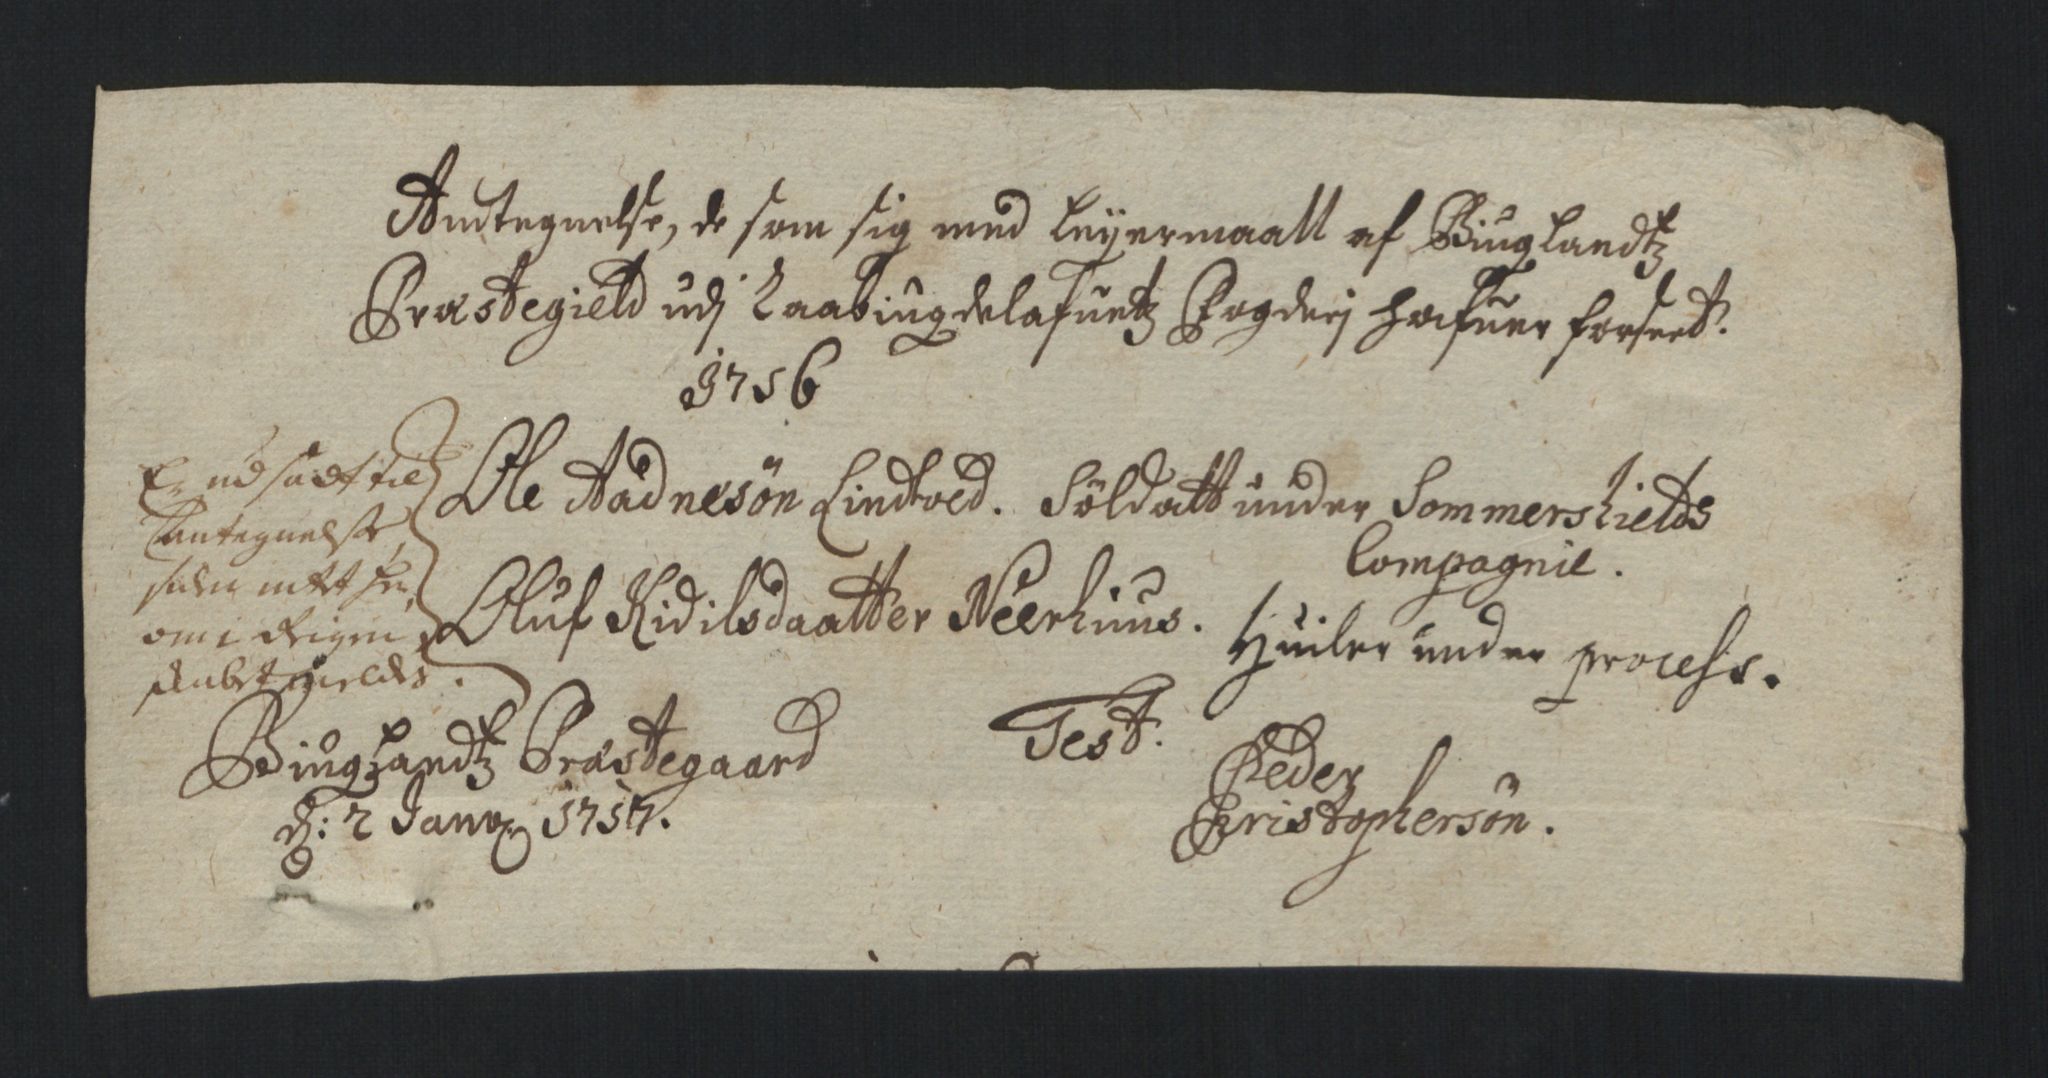 Antegnelse, de som sig med Leyermaall af Biuglandtz
Præstegield udj Raabiugdelafuetz Fogderj hafuer forseet.
1716
Ole Aadnesön Lindtved. Söldatt under Sommerskields
Compagnie.
Oluf Kidilsdaatter Neerhuus. Huiler under process.
Er udsadt til
Antegnelse,
om i
gieldes.
Biuglandtz Præstegaard
d: 2 Janv. 1717.
Test.
Peder
Christophersön.